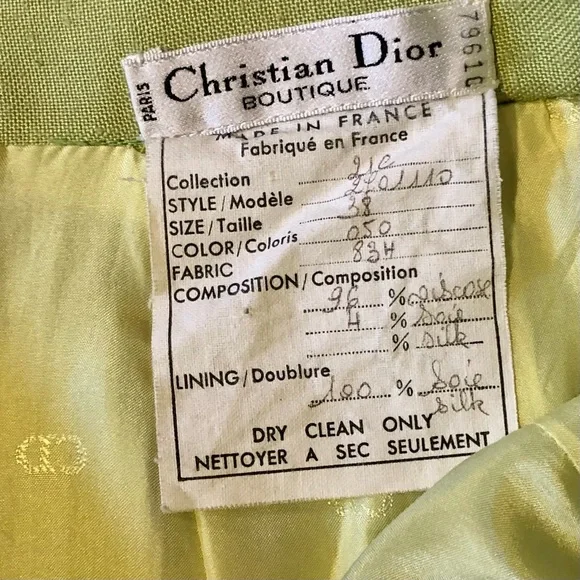 Christian Dior
BOUTIQUE
PARIS
79616
MADE IN FRANCE
Fabriqué en France
Collection 21C
STYLE/Modèle 2701110
SIZE/Taille 38
COLOR/Coloris 050
FABRIC 83H
COMPOSITION/Composition
96 % viscose
4 % Soie
% Silk
LINING/Doublure
100 % Soie
Silk
DRY CLEAN ONLY
NETTOYER A SEC SEULEMENT